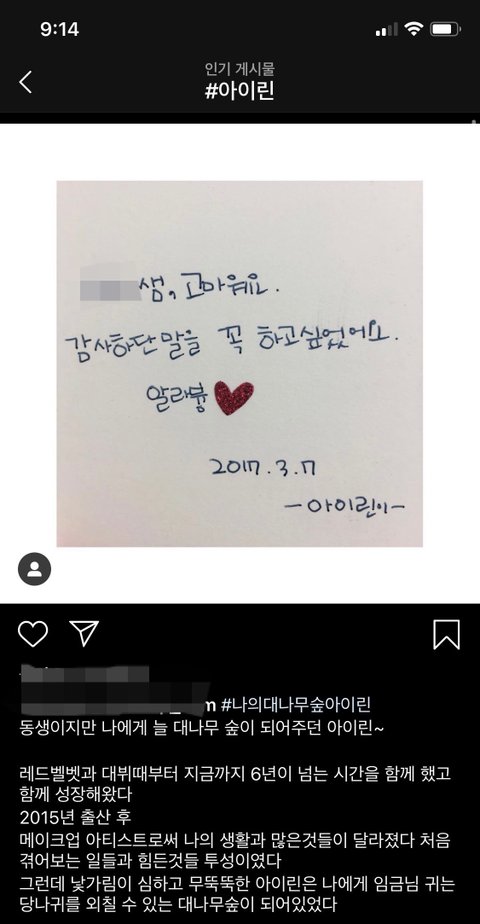 9:14
인기 게시물
#아이린
샘, 고마워요.
감사하단 말을 꼭 하고싶었어요.
알라뷰
2017.3.7
-아이린이-
m #나의대나무숲아이린
동생이지만 나에게 늘 대나무 숲이 되어주던 아이린~
레드벨벳과 대뷔때부터 지금까지 6년이 넘는 시간을 함께 했고
함께 성장해왔다
2015년 출산 후
메이크업 아티스트로써 나의 생활과 많은것들이 달라졌다 처음
겪어보는 일들과 힘든것들 투성이였다
그런데 낯가림이 심하고 무뚝뚝한 아이린은 나에게 임금님 귀는
당나귀를 외칠 수 있는 대나무숲이 되어있었다